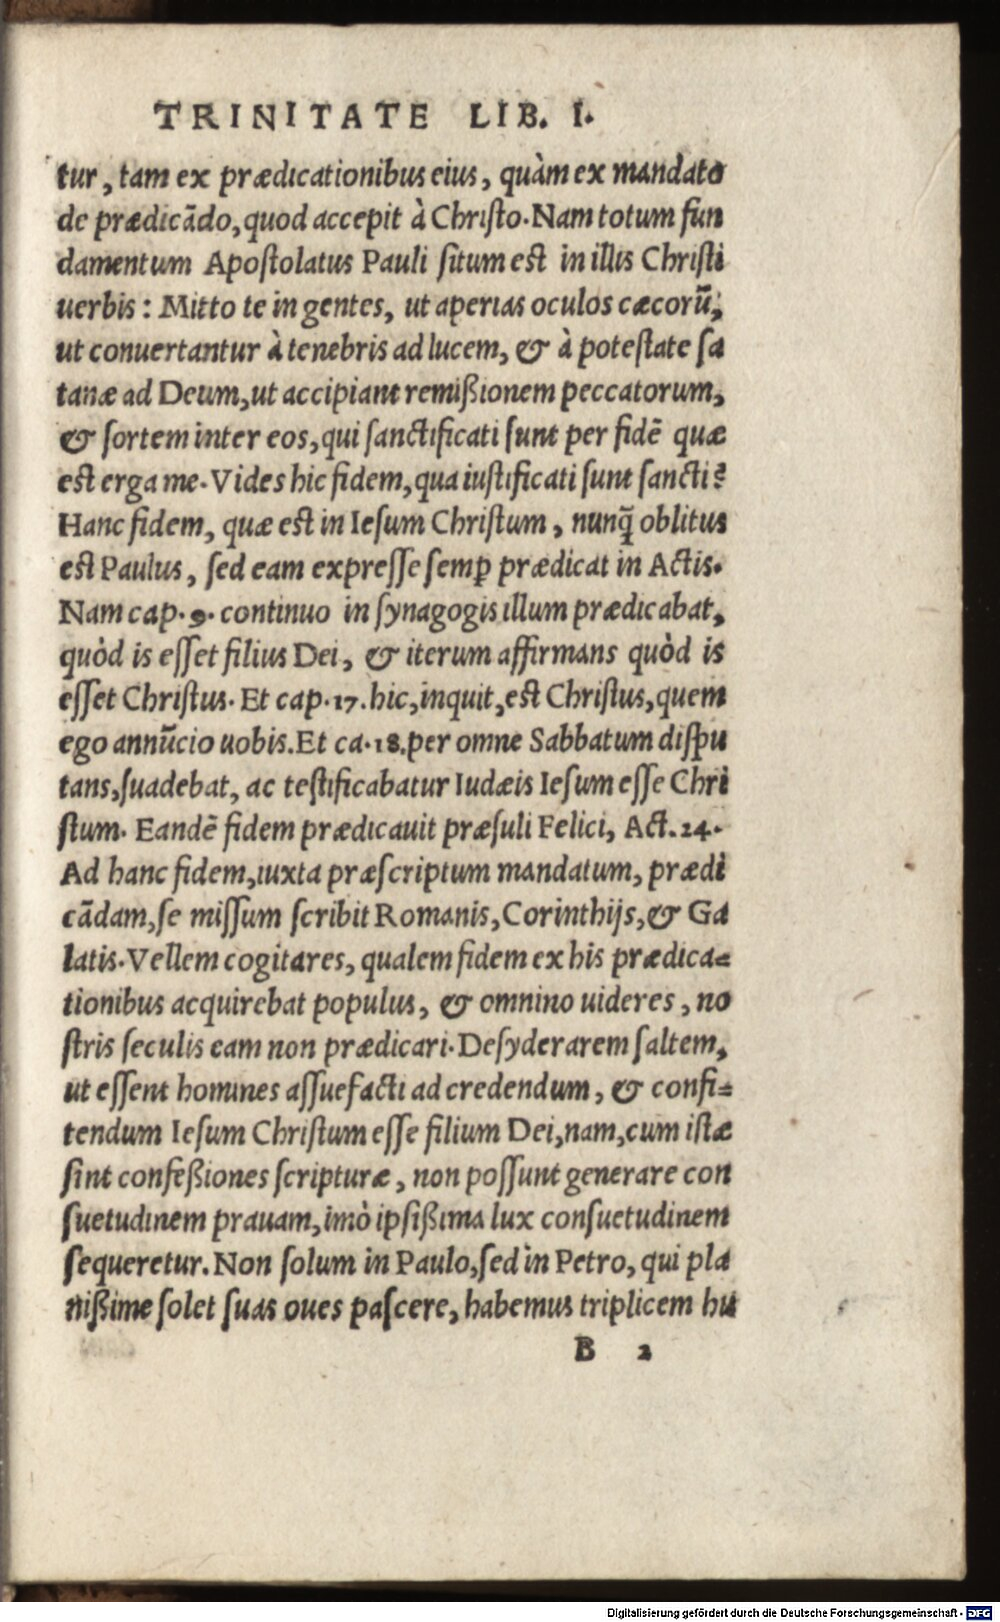 TRINITATE LIB. I.
tur, tam ex prædicationibus eius, quàm ex mandato
de prædicādo, quod accepit à Christo. Nam totum fun
damentum Apostolatus Pauli situm est in illis Christi
uerbis: Mitto te in gentes, ut aperias oculos cæcorū,
ut conuertantur à tenebris ad lucem, & à potestate sa
tanæ ad Deum, ut accipiant remißionem peccatorum,
& sortem inter eos, qui sanctificati sunt per fidē quæ
est erga me. Vides hic fidem, qua iustificati sunt sancti?
Hanc fidem, quæ est in Iesum Christum, nunq̄ oblitus
est Paulus, sed eam expresse semꝑ prædicat in Actis.
Nam cap. 9. continuo in synagogis illum prædicabat,
quòd is esset filius Dei, & iterum affirmans quòd is
esset Christus. Et cap. 17. hic, inquit, est Christus, quem
ego annūcio uobis. Et ca. 18. per omne Sabbatum dispu
tans, suadebat, ac testificabatur Iudæis Iesum esse Chri
stum. Eandē fidem prædicauit præsuli Felici, Act. 24.
Ad hanc fidem, iuxta præscriptum mandatum, prædi
cādam, se missum scribit Romanis, Corinthijs, & Ga
latis. Vellem cogitares, qualem fidem ex his prædica=
tionibus acquirebat populus, & omnino uideres, no
stris seculis eam non prædicari. Desyderarem saltem,
ut essent homines assuefacti ad credendum, & confi=
tendum Iesum Christum esse filium Dei, nam, cum istæ
sint confeßiones scripturæ, non possunt generare con
suetudinem prauam, imò ipsißima lux consuetudinem
sequeretur. Non solum in Paulo, sed in Petro, qui pla
nißime solet suas oues pascere, habemus triplicem hu
B 2
Digitalisierung gefördert durch die Deutsche Forschungsgemeinschaft - DFG